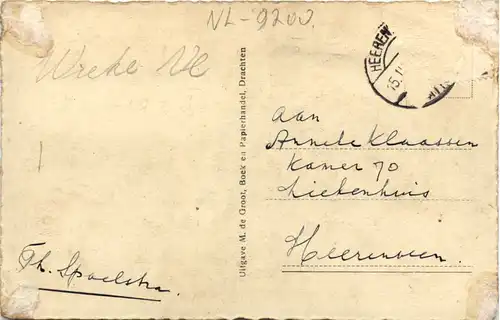 NL-9200.
HEEREN
15.
Uitgave M. de Groot, Boek en Papierhandel, Drachten
aan
Klaassen
Kamer 70
Ziekenhuis
Heerenveen.
Th. Spoelstra.